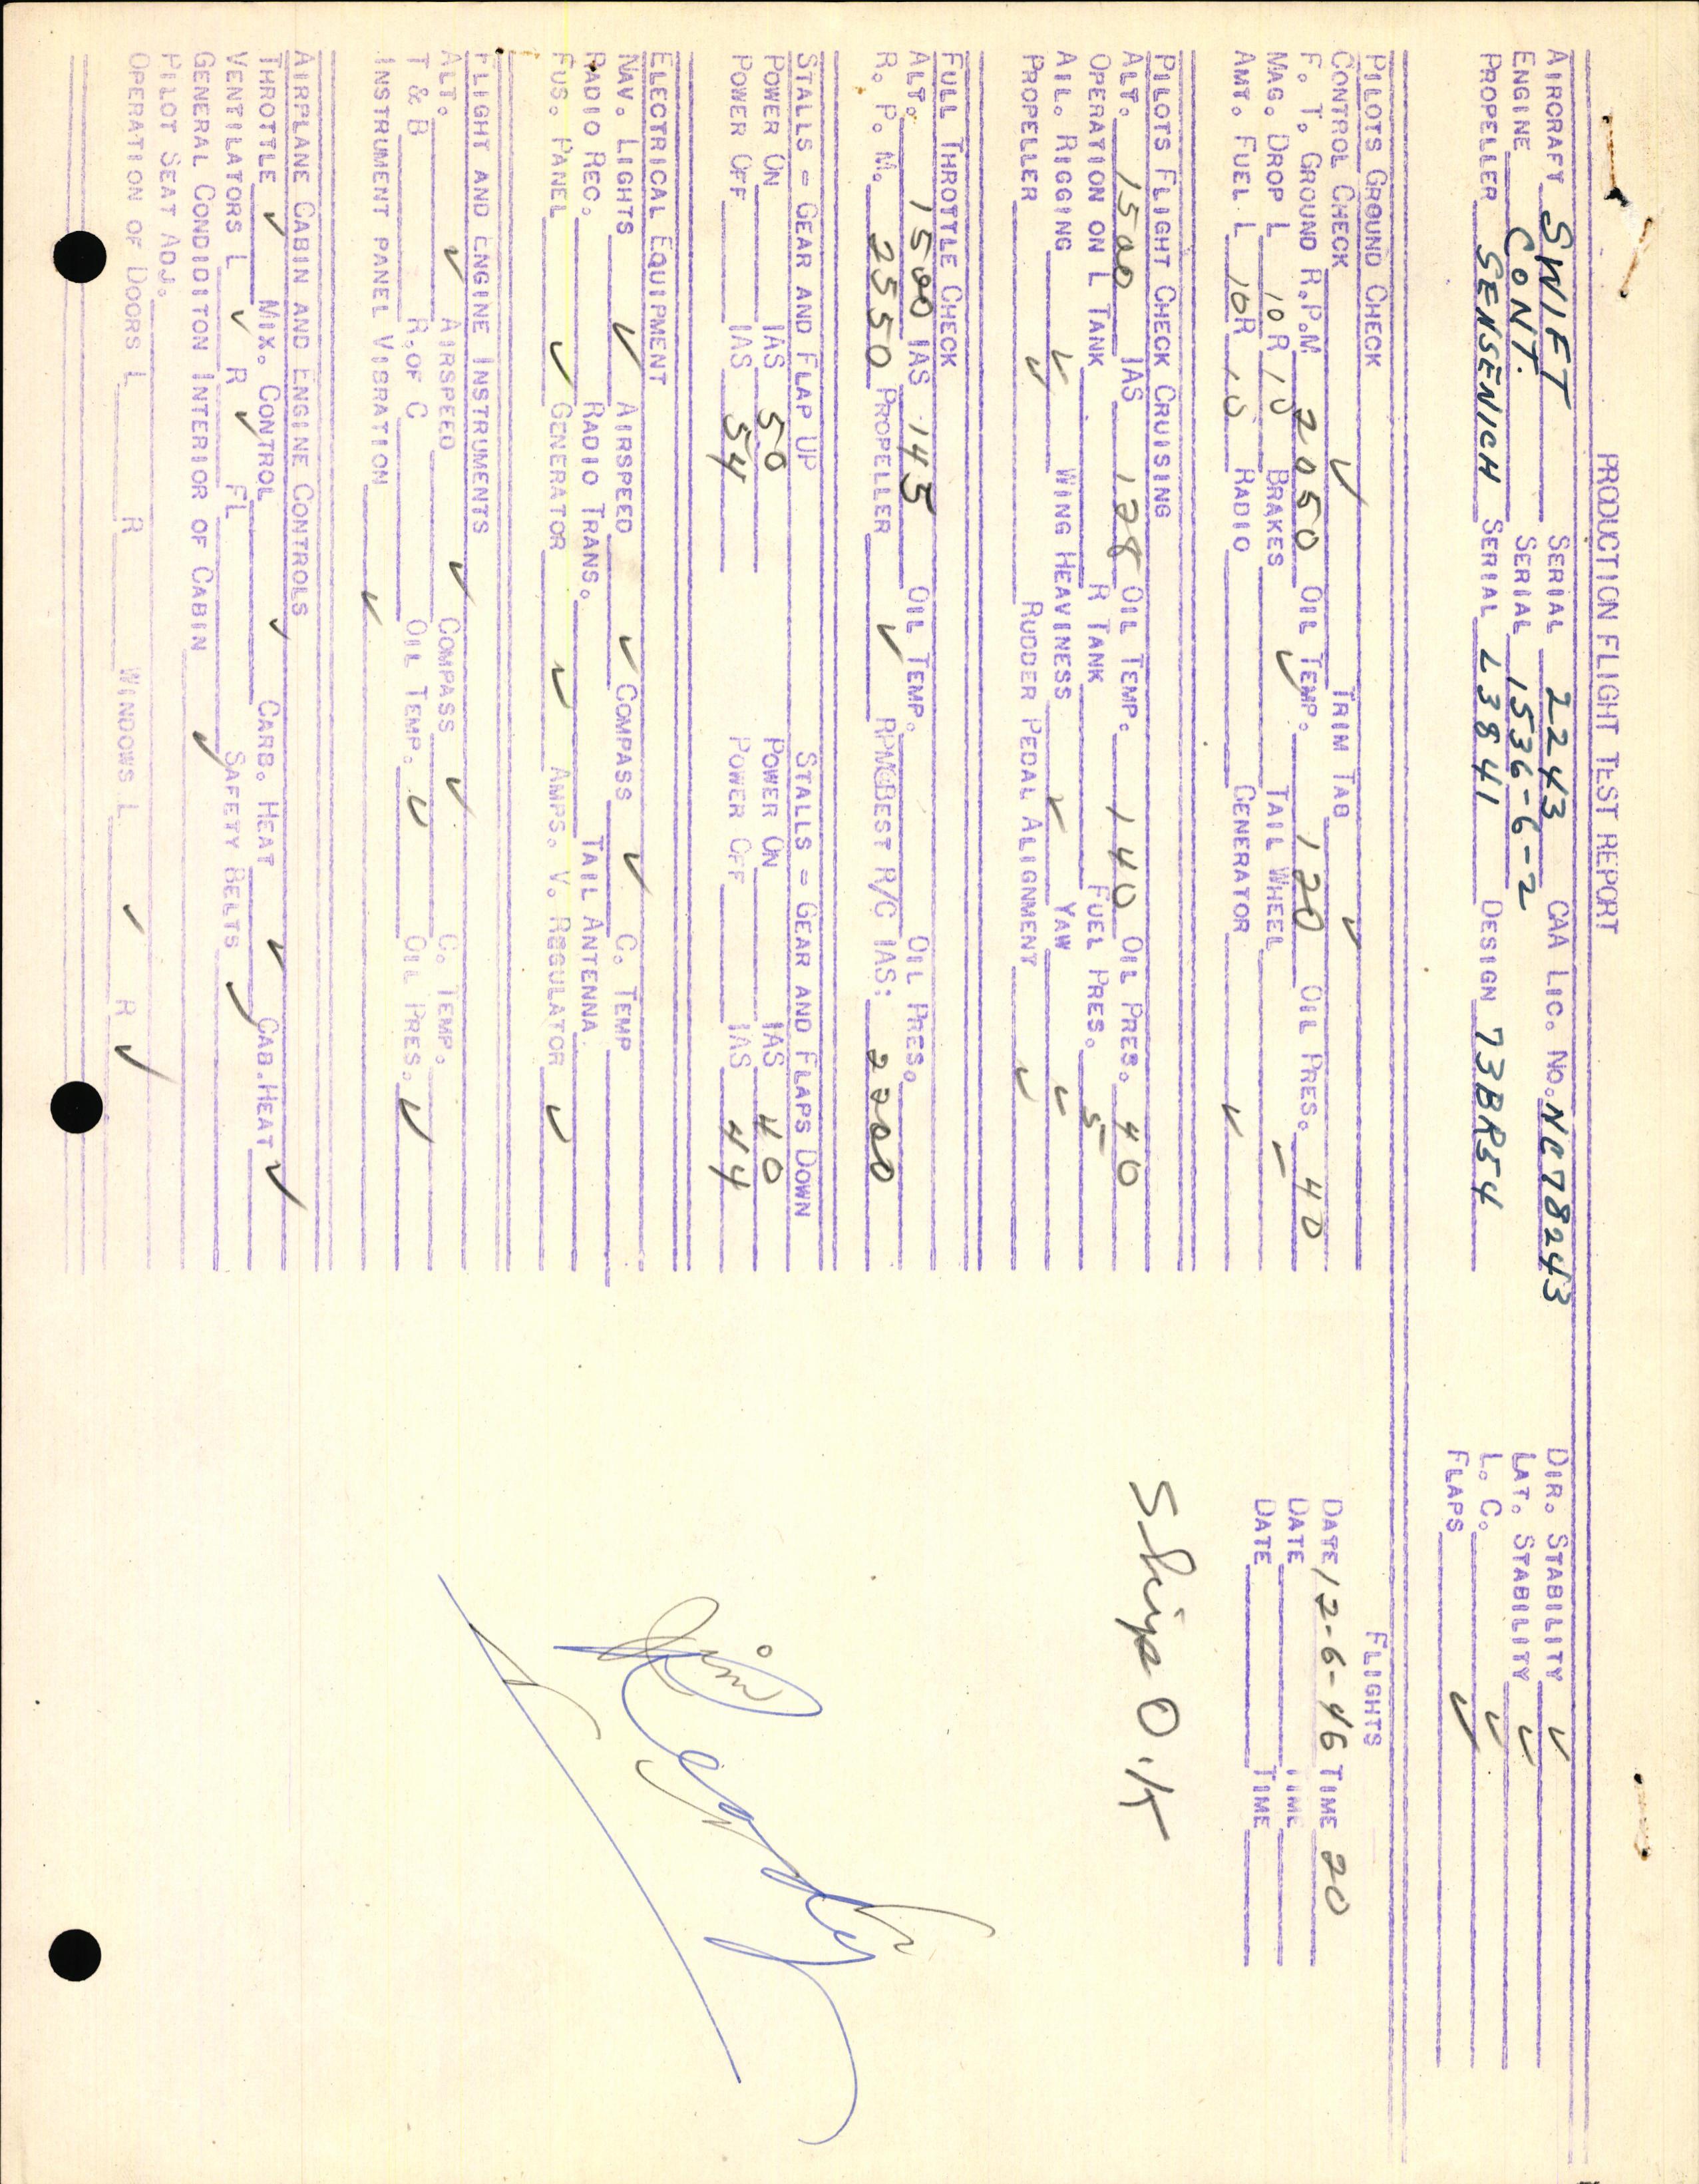 PRODUCTION FLIGHT TEST REPORT
AIRCRAFT SWIFT SERIAL 2243 CAA LIC. NO. NC78243 DIR. STABILITY ✓
ENGINE CONT. SERIAL 1536-6-2 LAT. STABILITY ✓
PROPELLER SENSENICH SERIAL L3841 DESIGN 73BR54 L. C. ✓
FLAPS ✓
PILOTS GROUND CHECK FLIGHTS
CONTROL CHECK ✓ TRIM TAB ✓
F. T. GROUND R.P.M 2050 OIL TEMP. 120 OIL PRES. 40 DATE 12-6-46 TIME 20
MAG. DROP L 10 R 10 BRAKES ✓ TAIL WHEEL ✓ DATE TIME
AMT. FUEL L 10 R 10 RADIO GENERATOR ✓ DATE TIME
PILOTS FLIGHT CHECK CRUISING
ALT. 1500 IAS 128 OIL TEMP. 140 OIL PRES. 40 Ship O.K
OPERATION ON L TANK R TANK FUEL PRES. 5
AIL. RIGGING ✓ WING HEAVINESS ✓ YAW ✓
PROPELLER ✓ RUDDER PEDAL ALIGNMENT ✓
FULL THROTTLE CHECK
ALT. 1500 IAS 145 OIL TEMP. OIL PRES.
R. P. M. 2550 PROPELLER ✓ RPM@BEST R/C IAS: 2200
STALLS = GEAR AND FLAP UP STALLS = GEAR AND FLAPS DOWN
POWER ON IAS 50 POWER ON IAS 40
POWER OFF IAS 54 POWER OFF IAS 44
ELECTRICAL EQUIPMENT
NAV. LIGHTS ✓ AIRSPEED ✓ COMPASS ✓ C. TEMP
RADIO REC. RADIO TRANS. TAIL ANTENNA.
FUS. PANEL ✓ GENERATOR ✓ AMPS. V. REGULATOR ✓
FLIGHT AND ENGINE INSTRUMENTS
ALT. ✓ AIRSPEED ✓ COMPASS ✓ C. TEMP.
T & B R.OF C OIL TEMP. ✓ OIL PRES. ✓
INSTRUMENT PANEL VIBRATION ✓
AIRPLANE CABIN AND ENGINE CONTROLS
THROTTLE ✓ MIX. CONTROL ✓ CARB. HEAT ✓ CAB.HEAT ✓
VENTILATORS L ✓ R ✓ FL SAFETY BELTS ✓
GENERAL CONDIDITON INTERIOR OF CABIN ✓
PILOT SEAT ADJ.
OPERATION OF DOORS L R WINDOWS L ✓ R ✓